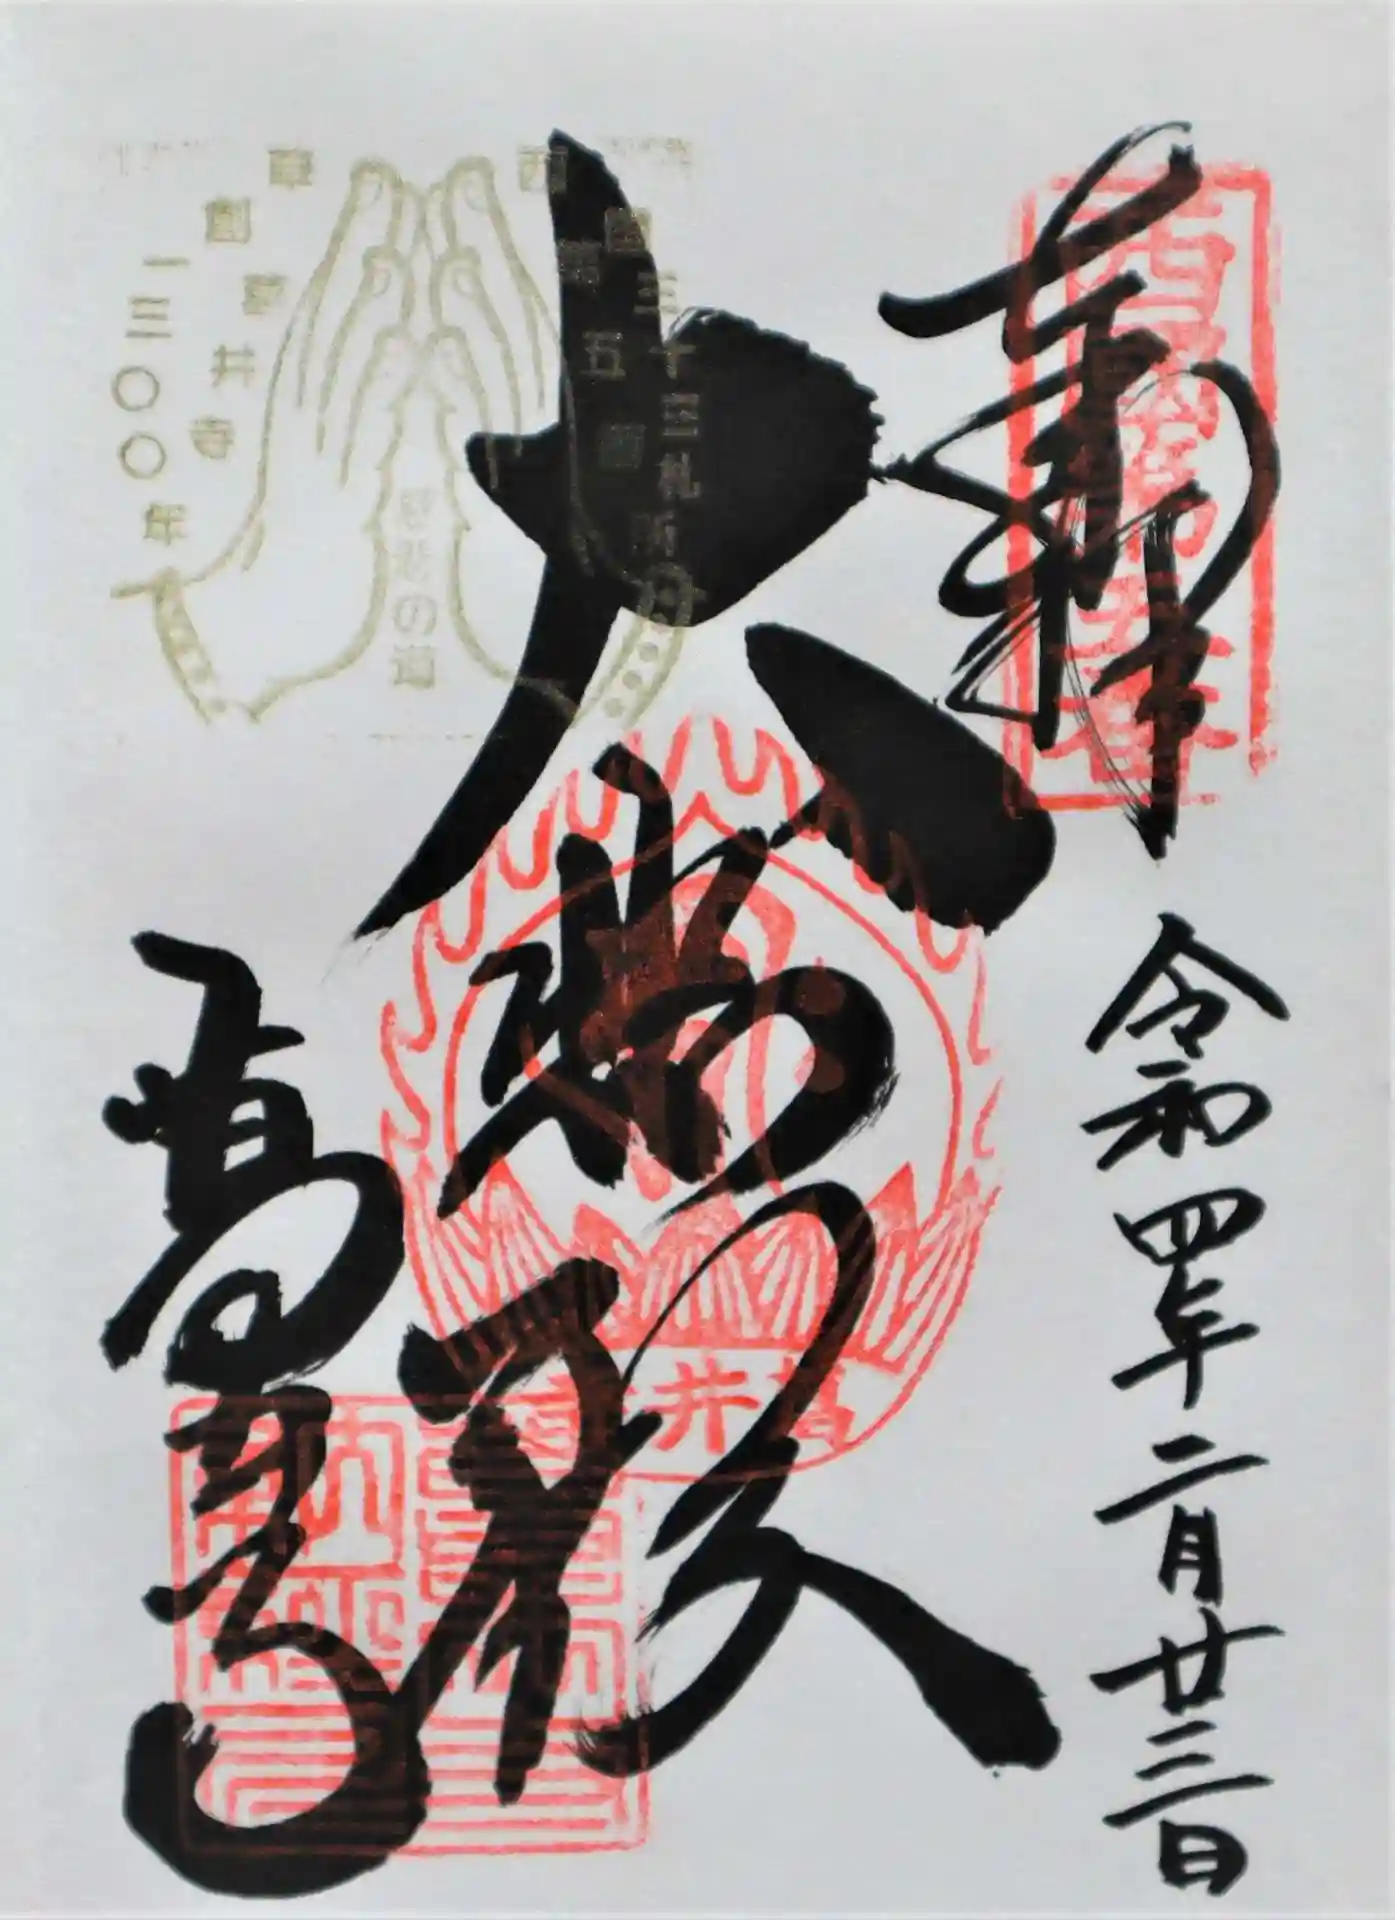 奉拝
西国第五番
令和四年二月廿三日
大悲殿
葛井寺
西国三十三札所会
第五番
葛井寺
草創一三〇〇年
慈悲の道
葛井寺